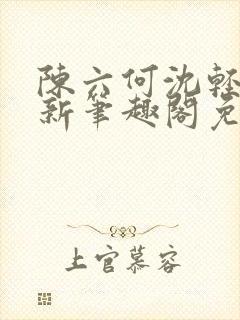 陳六何沈輕
新筆趣閣免
上官慕容